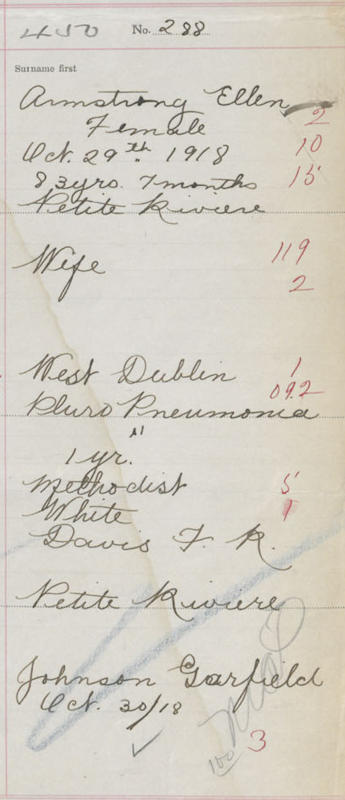 450 No. 288
Surname first
Armstrong Ellen
2
Female
Oct. 29th 1918 10
83yrs. 7months 15
Petite Riviere
Wife 119
2
West Dublin 1
092
Pluro Pneumonia
"
1 yr.
Methodist 5
White 1
Davis F. R.
Petite Riviere
Johnson Garfield
Oct. 30/18
100
3